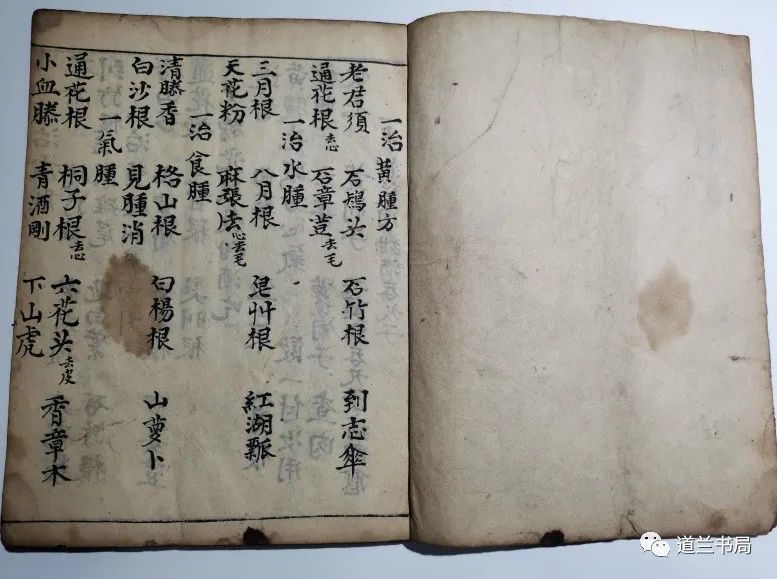 一治黄腫方
老君須 石鵝头 石竹根 到志傘
通花根去心 石章荳去毛
一治水腫
三月根 八月根 皂艸根 紅湖瓢
天花粉 麻張 去心去毛
一治食腫
清藤香 格山根 白楊根 山萝卜
白沙根 見腫消
一氣腫
通花根 桐子根去心 六花头去皮 香章木
小血藤 青酒剛 下山虎
道兰书局